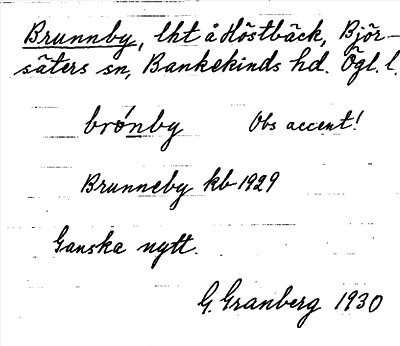 Brunnby, lht å Höstbäck, Björ-
säters sn, Bankekinds hd. Ögl. l.
brónby Obs accent!
Brunneby kb 1929
Ganska nytt.
G. Granberg 1930